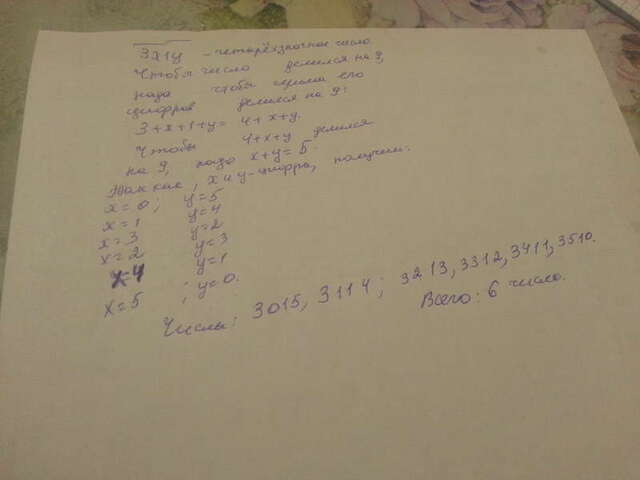 3x1y - четырёхзначное число
Чтобы число делился на 9,
надо чтобы сумма его
цифров делился на 9:
3+x+1+y= 4+x+y.
Чтобы 4+x+y делился
на 9, надо x+y=5.
Так как, x и y-цифра, получим.
x=0; y=5
x=1 y=4
x=3 y=2
x=2 y=3
x=4 y=1
x=5 ; y=0.
Числы: 3015, 3114; 3213, 3312, 3411, 3510.
Всего: 6 число.